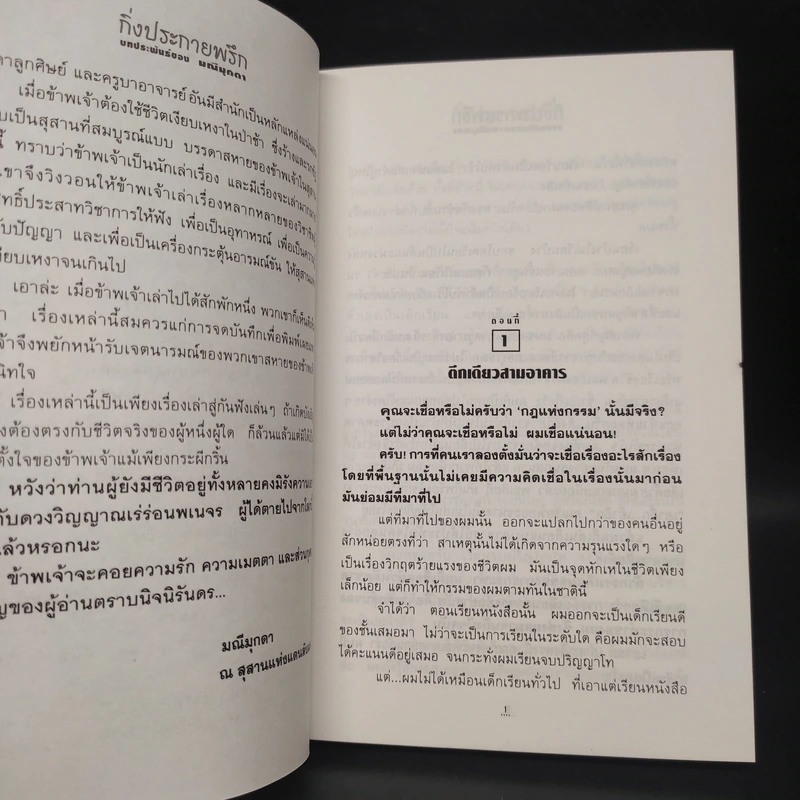 กิ่งประกายพรึก
บทประพันธ์ของ มณีมุกดา
ลูกศิษย์ และครูบาอาจารย์อันมีสำนักเป็นหลักแหล่ง
เมื่อข้าพเจ้าต้องใช้ชีวิตเงียบเหงาในป่าช้า ซึ่งร้าง
เป็นสุสานที่สมบูรณ์แบบ บรรดาสหายของข้าพเจ้าใน
ทราบว่าข้าพเจ้าเป็นนักเล่าเรื่อง และมีเรื่องจะเล่า
เขาจึงวิงวอนให้ข้าพเจ้าเล่าเรื่องหลากหลายของวิชา
สิทธิ์ประสาทวิชาการให้ฟัง เพื่อเป็นอุทาหรณ์ เพื่อเป็น
ปัญญา และเพื่อเป็นเครื่องกระตุ้นอารมณ์ขัน ให้
เงียบเหงาจนเกินไป
เอาล่ะ เมื่อข้าพเจ้าเล่าไปได้สักพักหนึ่ง พวกเขาก็
เรื่องเหล่านี้สมควรแก่การจดบันทึกเพื่อพิมพ์
จึงพยักหน้ารับเจตนารมณ์ของพวกเขาสหายของ
นิทใจ
เรื่องเหล่านี้เป็นเพียงเรื่องเล่าสู่กันฟังเล่นๆ ถ้าเกิด
ต้องตรงกับชีวิตจริงของผู้หนึ่งผู้ใด ก็ล้วนแล้วแต่มิได้
ตั้งใจของข้าพเจ้าแม้เพียงกระผีกริ้น
หวังว่าท่านผู้ยังมีชีวิตอยู่ทั้งหลายคงมิรัง
กับดวงวิญญาณเร่ร่อนพเนจร ผู้ได้ตายไปจาก
แล้วหรอกนะ
ข้าพเจ้าจะคอยความรัก ความเมตตา และ
ของผู้อ่านตราบนิจนิรันดร...
มณีมุกดา
ณ สุสานแห่ง
ตอนที่
1
ตึกเดียวสามอาคาร
คุณจะเชื่อหรือไม่ครับว่า ‘กฎแห่งกรรม’ นั้นมีจริง?
แต่ไม่ว่าคุณจะเชื่อหรือไม่ ผมเชื่อแน่นอน!
ครับ! การที่คนเราลองตั้งมั่นว่าจะเชื่อเรื่องอะไรสักเรื่อง
โดยที่พื้นฐานนั้นไม่เคยมีความคิดเชื่อในเรื่องนั้นมาก่อน
มันย่อมมีที่มาที่ไป
แต่ที่มาที่ไปของผมนั้น ออกจะแปลกไปกว่าของคนอื่นอยู่
สักหน่อยตรงที่ว่า สาเหตุนั้นไม่ได้เกิดจากความรุนแรงใดๆ หรือ
เป็นเรื่องวิกฤตร้ายแรงของชีวิตผม มันเป็นจุดหักเหในชีวิตเพียง
เล็กน้อย แต่ก็ทำให้กรรมของผมตามทันในชาตินี้
จำได้ว่า ตอนเรียนหนังสือนั้น ผมออกจะเป็นเด็กเรียนดี
ของชั้นเสมอมา ไม่ว่าจะเป็นการเรียนในระดับใด คือผมมักจะสอบ
ได้คะแนนดีอยู่เสมอ จนกระทั่งผมเรียนจบปริญญาโท
แต่...ผมไม่ได้เหมือนเด็กเรียนทั่วไป ที่เอาแต่เรียนหนังสือ
1